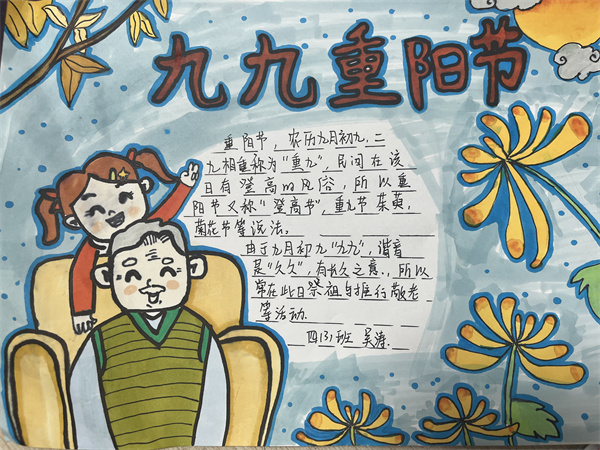 九九重阳节
重阳节，农历九月初九，二
九相重称为“重九”，民间在该
日有登高的风俗，所以重
阳节又称“登高节”，重九节茱萸，
菊花节等说法。
由于九月初九“九九”，谐音
是“久久”，有长久之意，所以
常在此日祭祖与推行敬老
等活动.
四（3）班 吴涛.